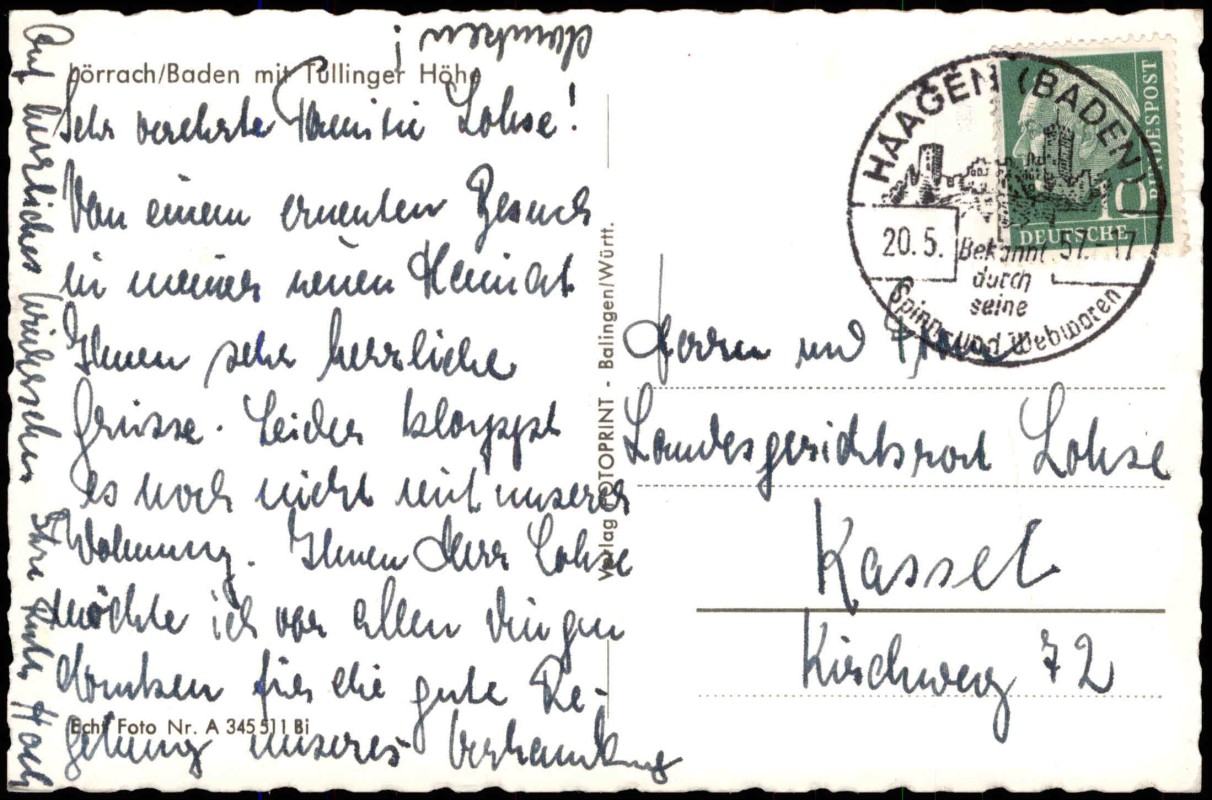 danken!
Lörrach/Baden mit Tüllinger Höhe
Sehr verehrte Familie Lohse!
Von einem erneuten Besuch
in meiner neuen Heimat
Ihnen sehr herzliche
Grüsse. Leider klappt
es noch nicht mit unserer
Wohnung. Ihnen Herr Lohse
möchte ich vor allen Dingen
danken für die gute Re-
gelung unserer
Echt Foto Nr. A 345511 Bi
Auf herzliches Wiedersehen Ihre Ruth
Verlag FOTOPRINT - Balingen/Württ.
HAAGEN (BADEN)
20.5.57.-17
Bekannt
durch
seine
Spinn- und Webwaren
10
DEUTSCHE
BUNDESPOST
Herrn und Frau
Landesgerichtsrat Lohse
Kassel
Kirchweg 72